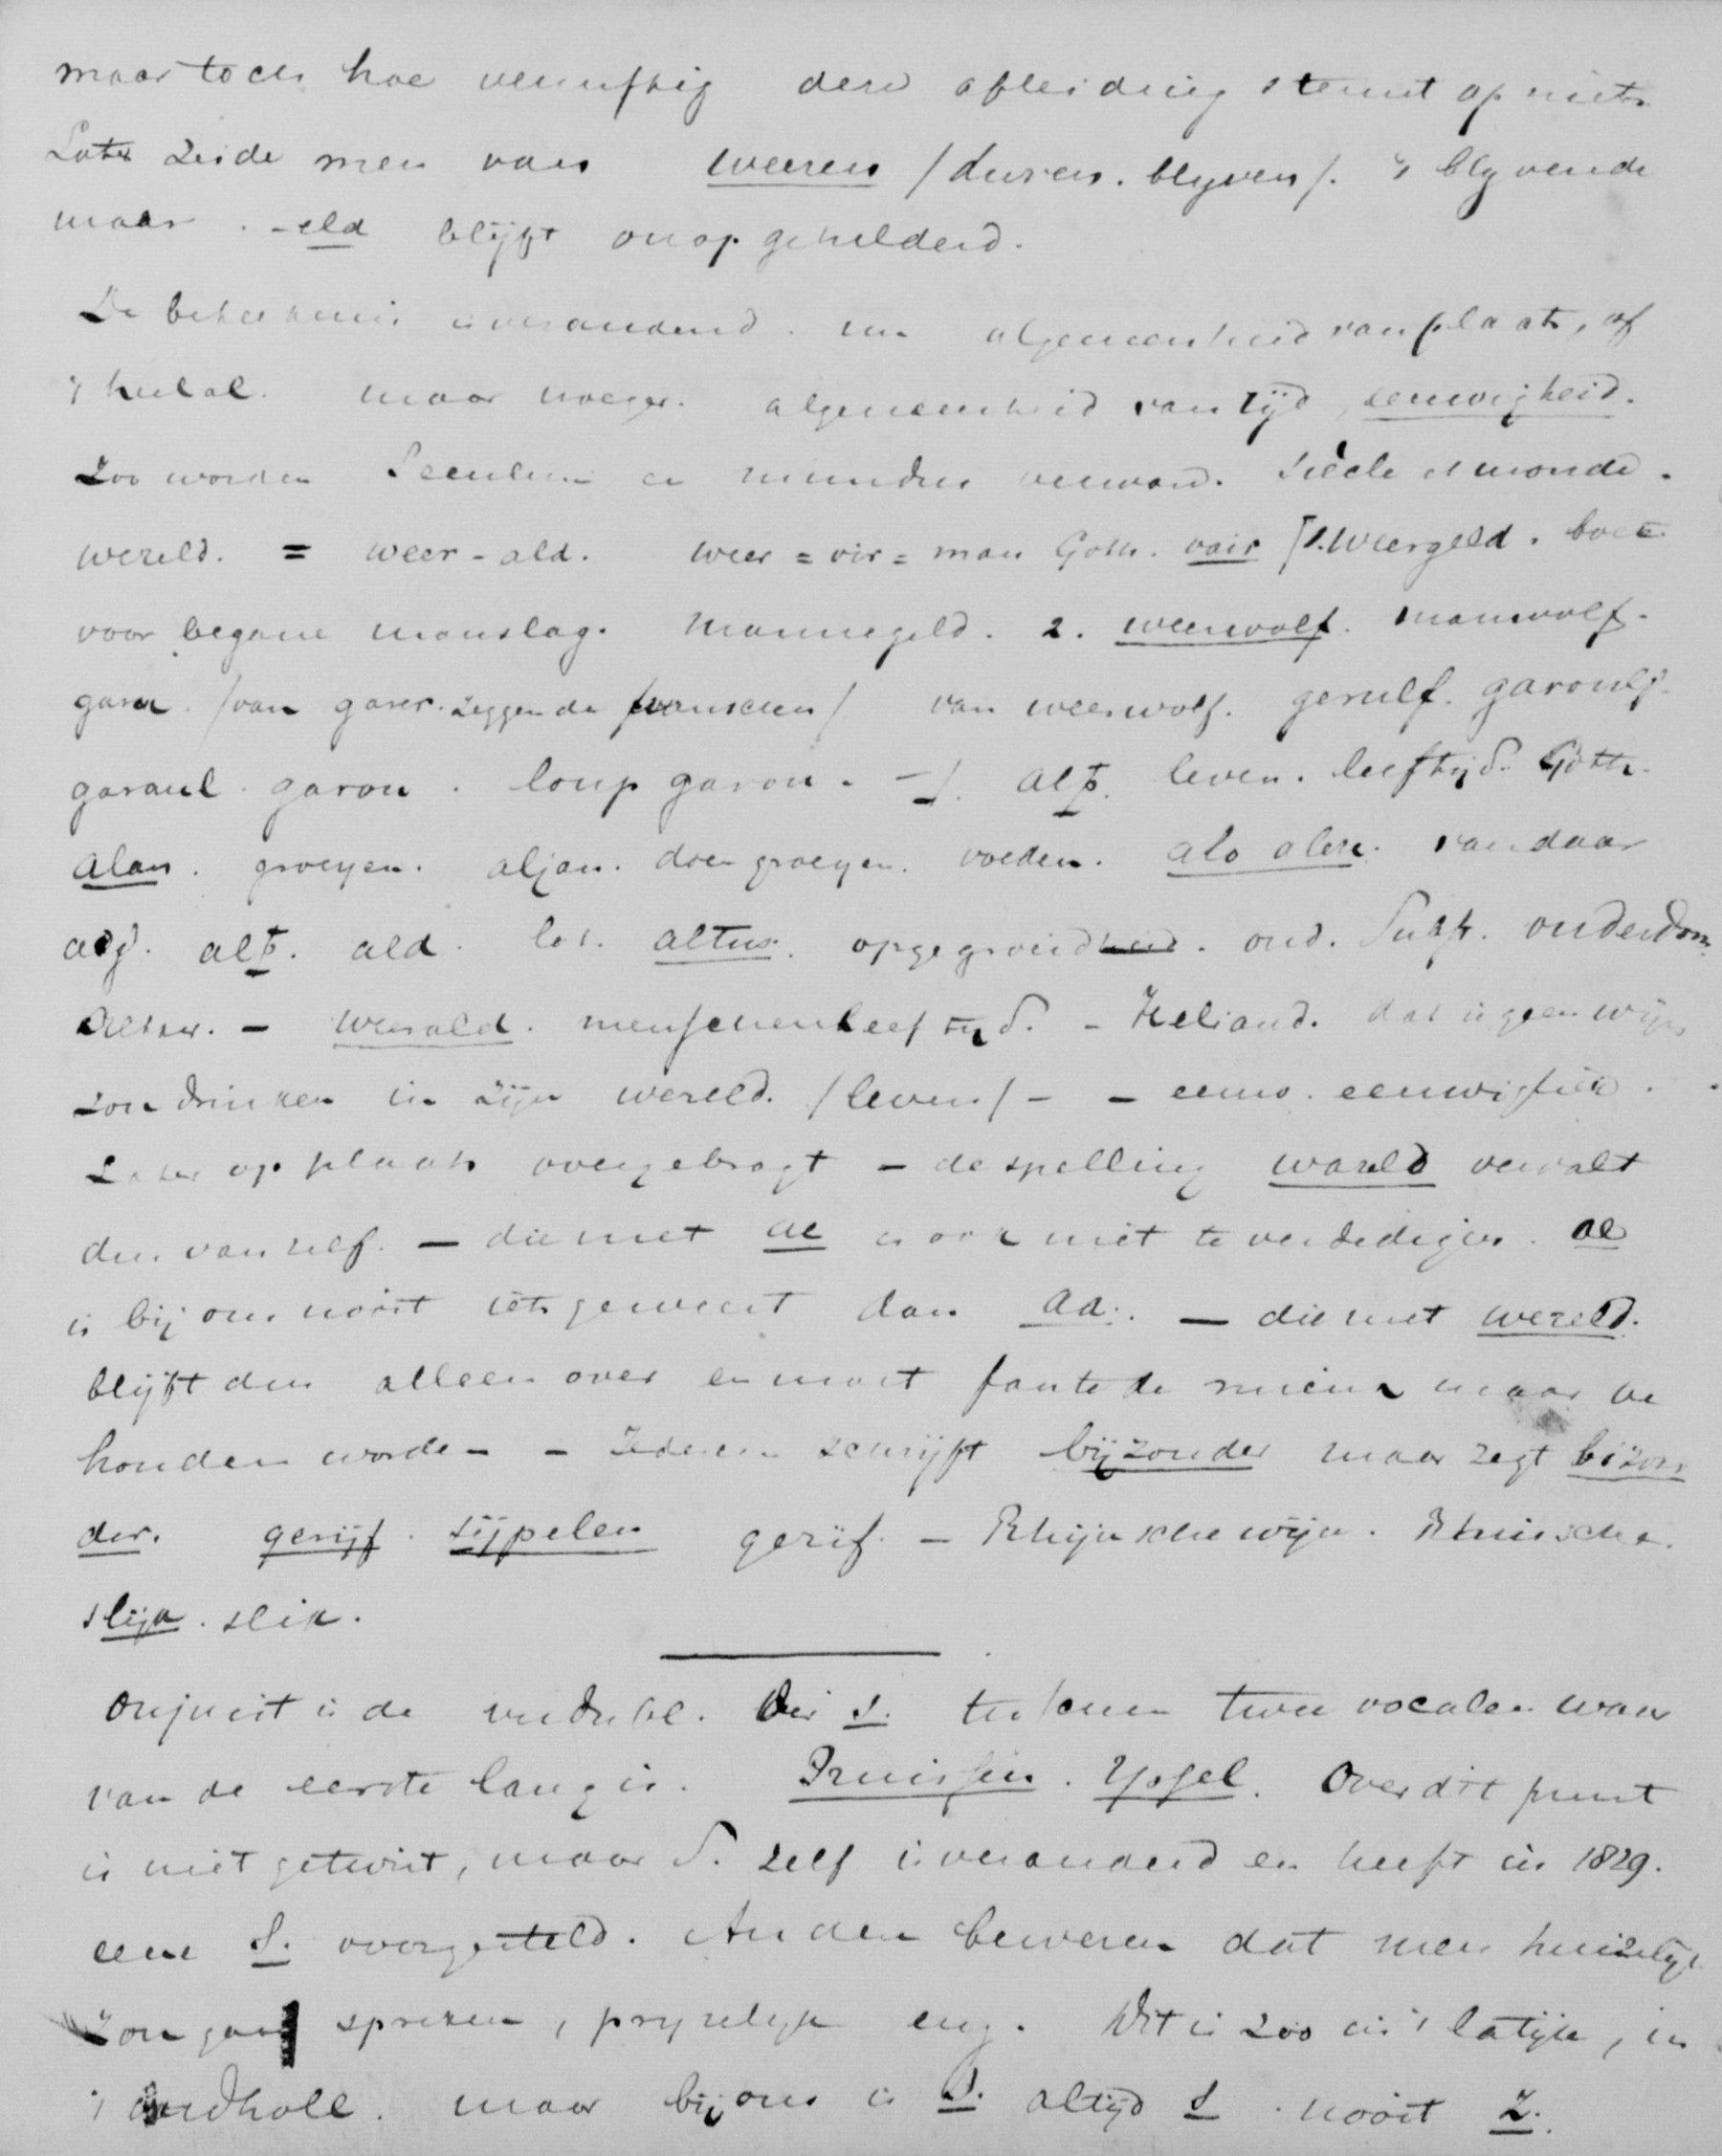 maar toch hoe vernuftig deze afleiding steunt op niets
Later zeide men van weeren /duren. blyven/. 't blyvende
maar . -eld blijft onopgehelderd.
De beteekenis is veranderd. nu algemeenheid van plaats, of
't heelal. maar vroeger. algemeenheid van tijd, eeuwigheid.
Zoo worden Seculum en mundus verward. siècle et monde.
wereld. = weer-ald. weer = vir = man Goth. vair /1. Weergeld. boete
voor begane manslag. mannegeld. 2. weerwolf. manwolf.
garou. /van garer. zeggen de franschen/ van weerwolf. gerulf. garoulf.
garoul. garou. loup garou. — alþ. leven. leeftijd. Goth.
alan. groeyen. aljan. doen groeyen. voeden. alo alere. vandaar
adj. alþ. ald. lat. altus. opgegroeid. oud. Subst. ouderdom.
Alter. — Werald. menschenleeftyd. - Heliand. dat is geen wijn
zou drinken in zijn wereld. /leven/ - - eeuw. eeuwigheid.
Later op plaats overgebragt — de spelling wareld vervalt
dus van zelf. — die met ae is ook niet te verdedigen. ae
is bij ons nooit iets geweest dan aa. — die met wereld.
blijft dus alleen over en moet faute de mieux maar be
houden worden - Iedereen schrijft bijzonder maar zegt bizon
der. gerijf. sijpelen gerif. — Rhijnsche wijn. Rhinsche.
slijk. slik.
Onjuist is de verdubbel. der s. tusschen twee vocalen waar
van de eerste lang is. Pruissen. Yssel. Over dit punt
is niet getwist, maar S. zelf is veranderd en heeft in 1829.
eene S. voorgesteld. Anderen beweren dat men huizelijk
zou gaan spreken, pryzelyk enz. Dit is zoo in 't latijn, in
't oudholl. maar bij ons is S. altijd S. nooit Z.